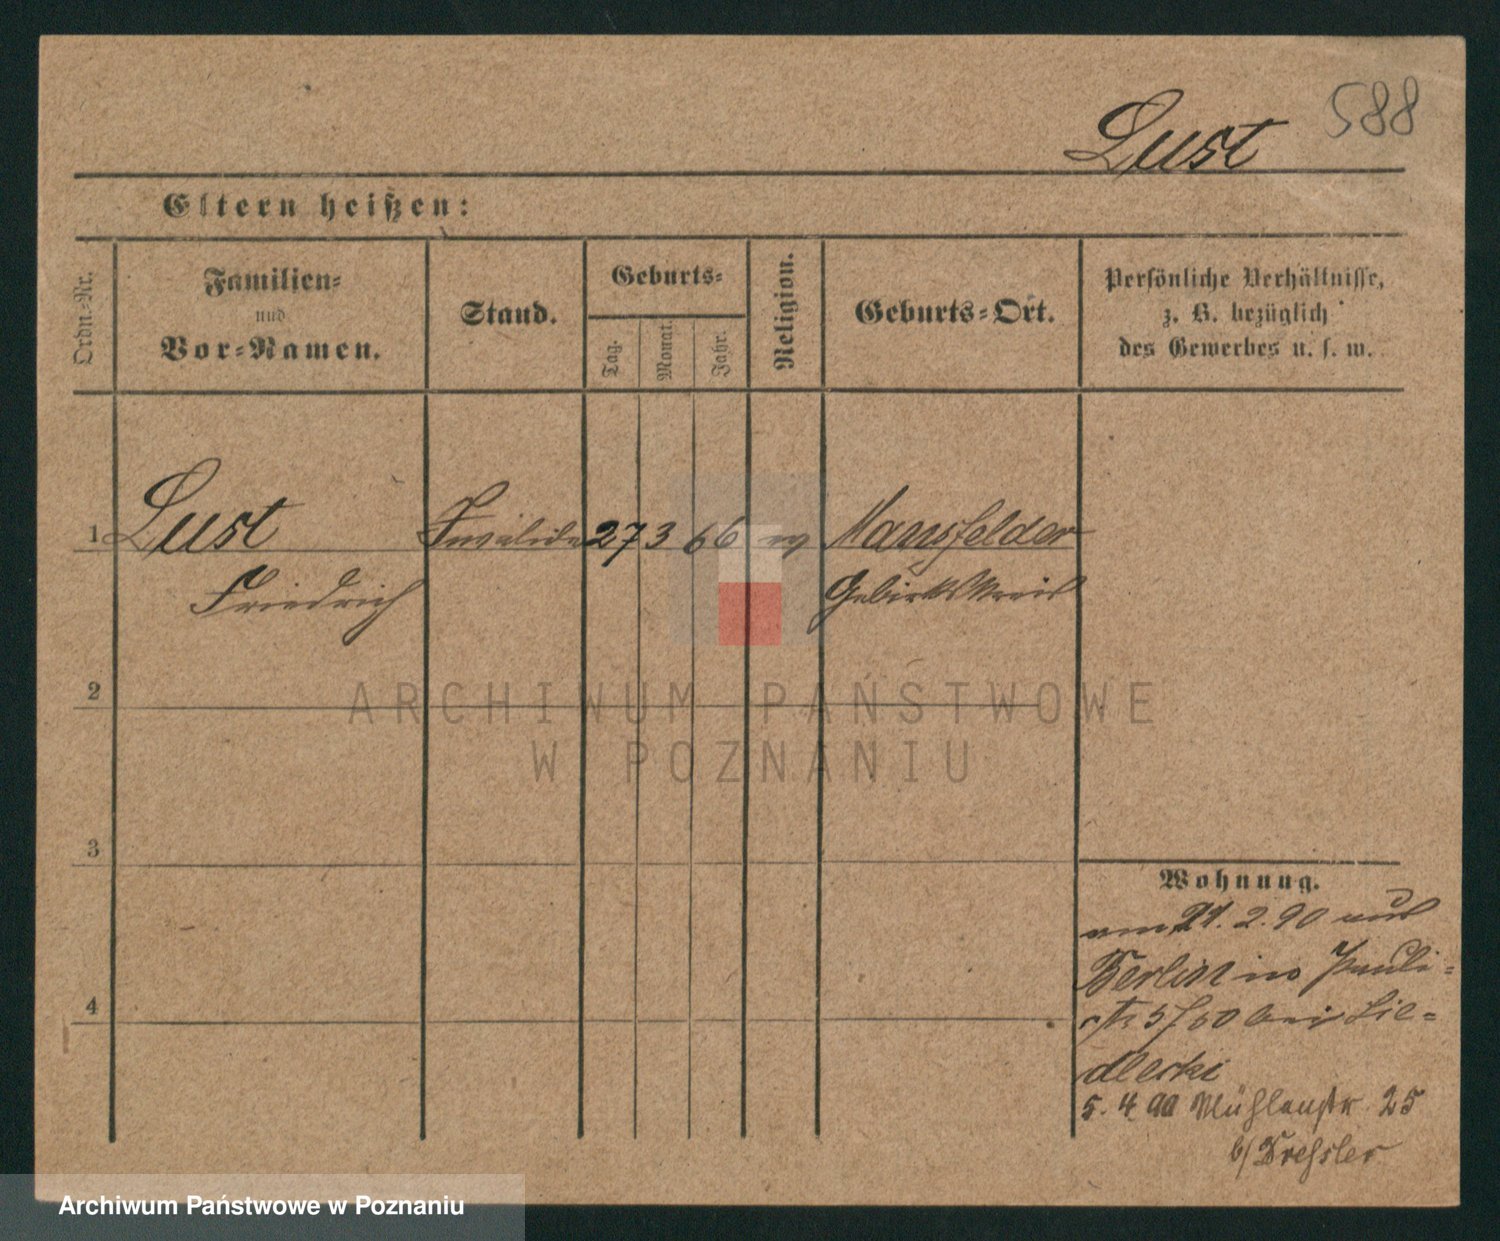 588
Lust
Eltern heißen:
Ordn.-Nr.
Familien-
und
Vor-Namen.
Stand.
Geburts-
Tag.
Monat.
Jahr.
Religion.
Geburts-Ort.
Persönliche Verhältnisse,
z. B. bezüglich
des Gewerbes u. s. w.
1 Lust Invalide 27 3 66 ev Mansfelder
Friedrich Gebirkskreis
2
ARCHIWUM PAŃSTWOWE
W POZNANIU
3
Wohnung.
am 21. 2. 90 aus
Berlin in Pauli-
4
str 5/60 bei Sie-
dlecki
5. 4. 90 Mühlenstr 25
b/ Dressler
Archiwum Państwowe w Poznaniu